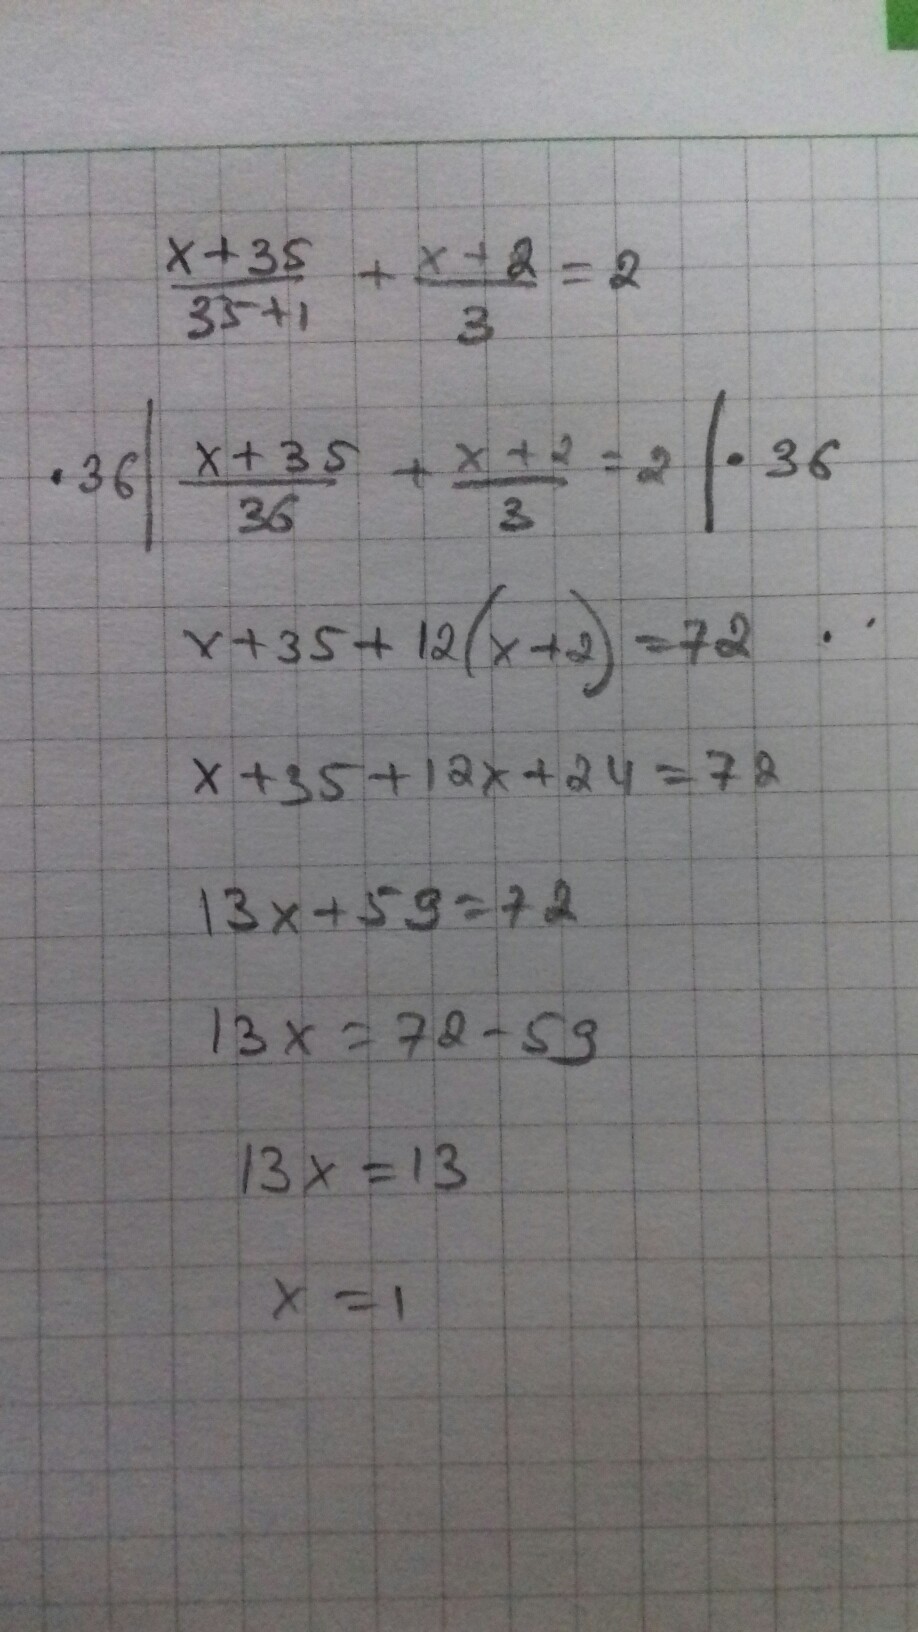 x+35/35+1 + x+2/3 = 2
·36| x+35/36 + x+2/3 = 2 |· 36
x+35+12(x+2)=72
x+35+12x+24=72
13x+59=72
13x=72-59
13x=13
x=1